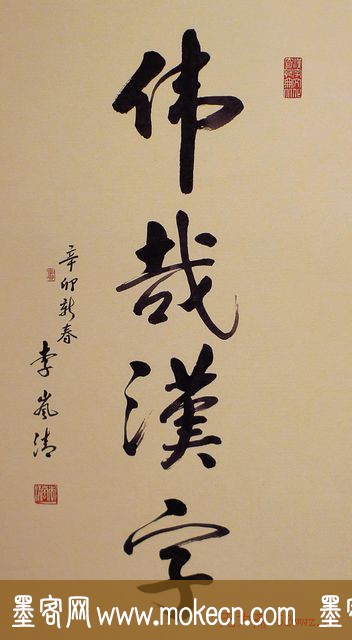 伟哉漢字
辛卯新春
李嵐清
墨客网 www.mokecn.com 墨客